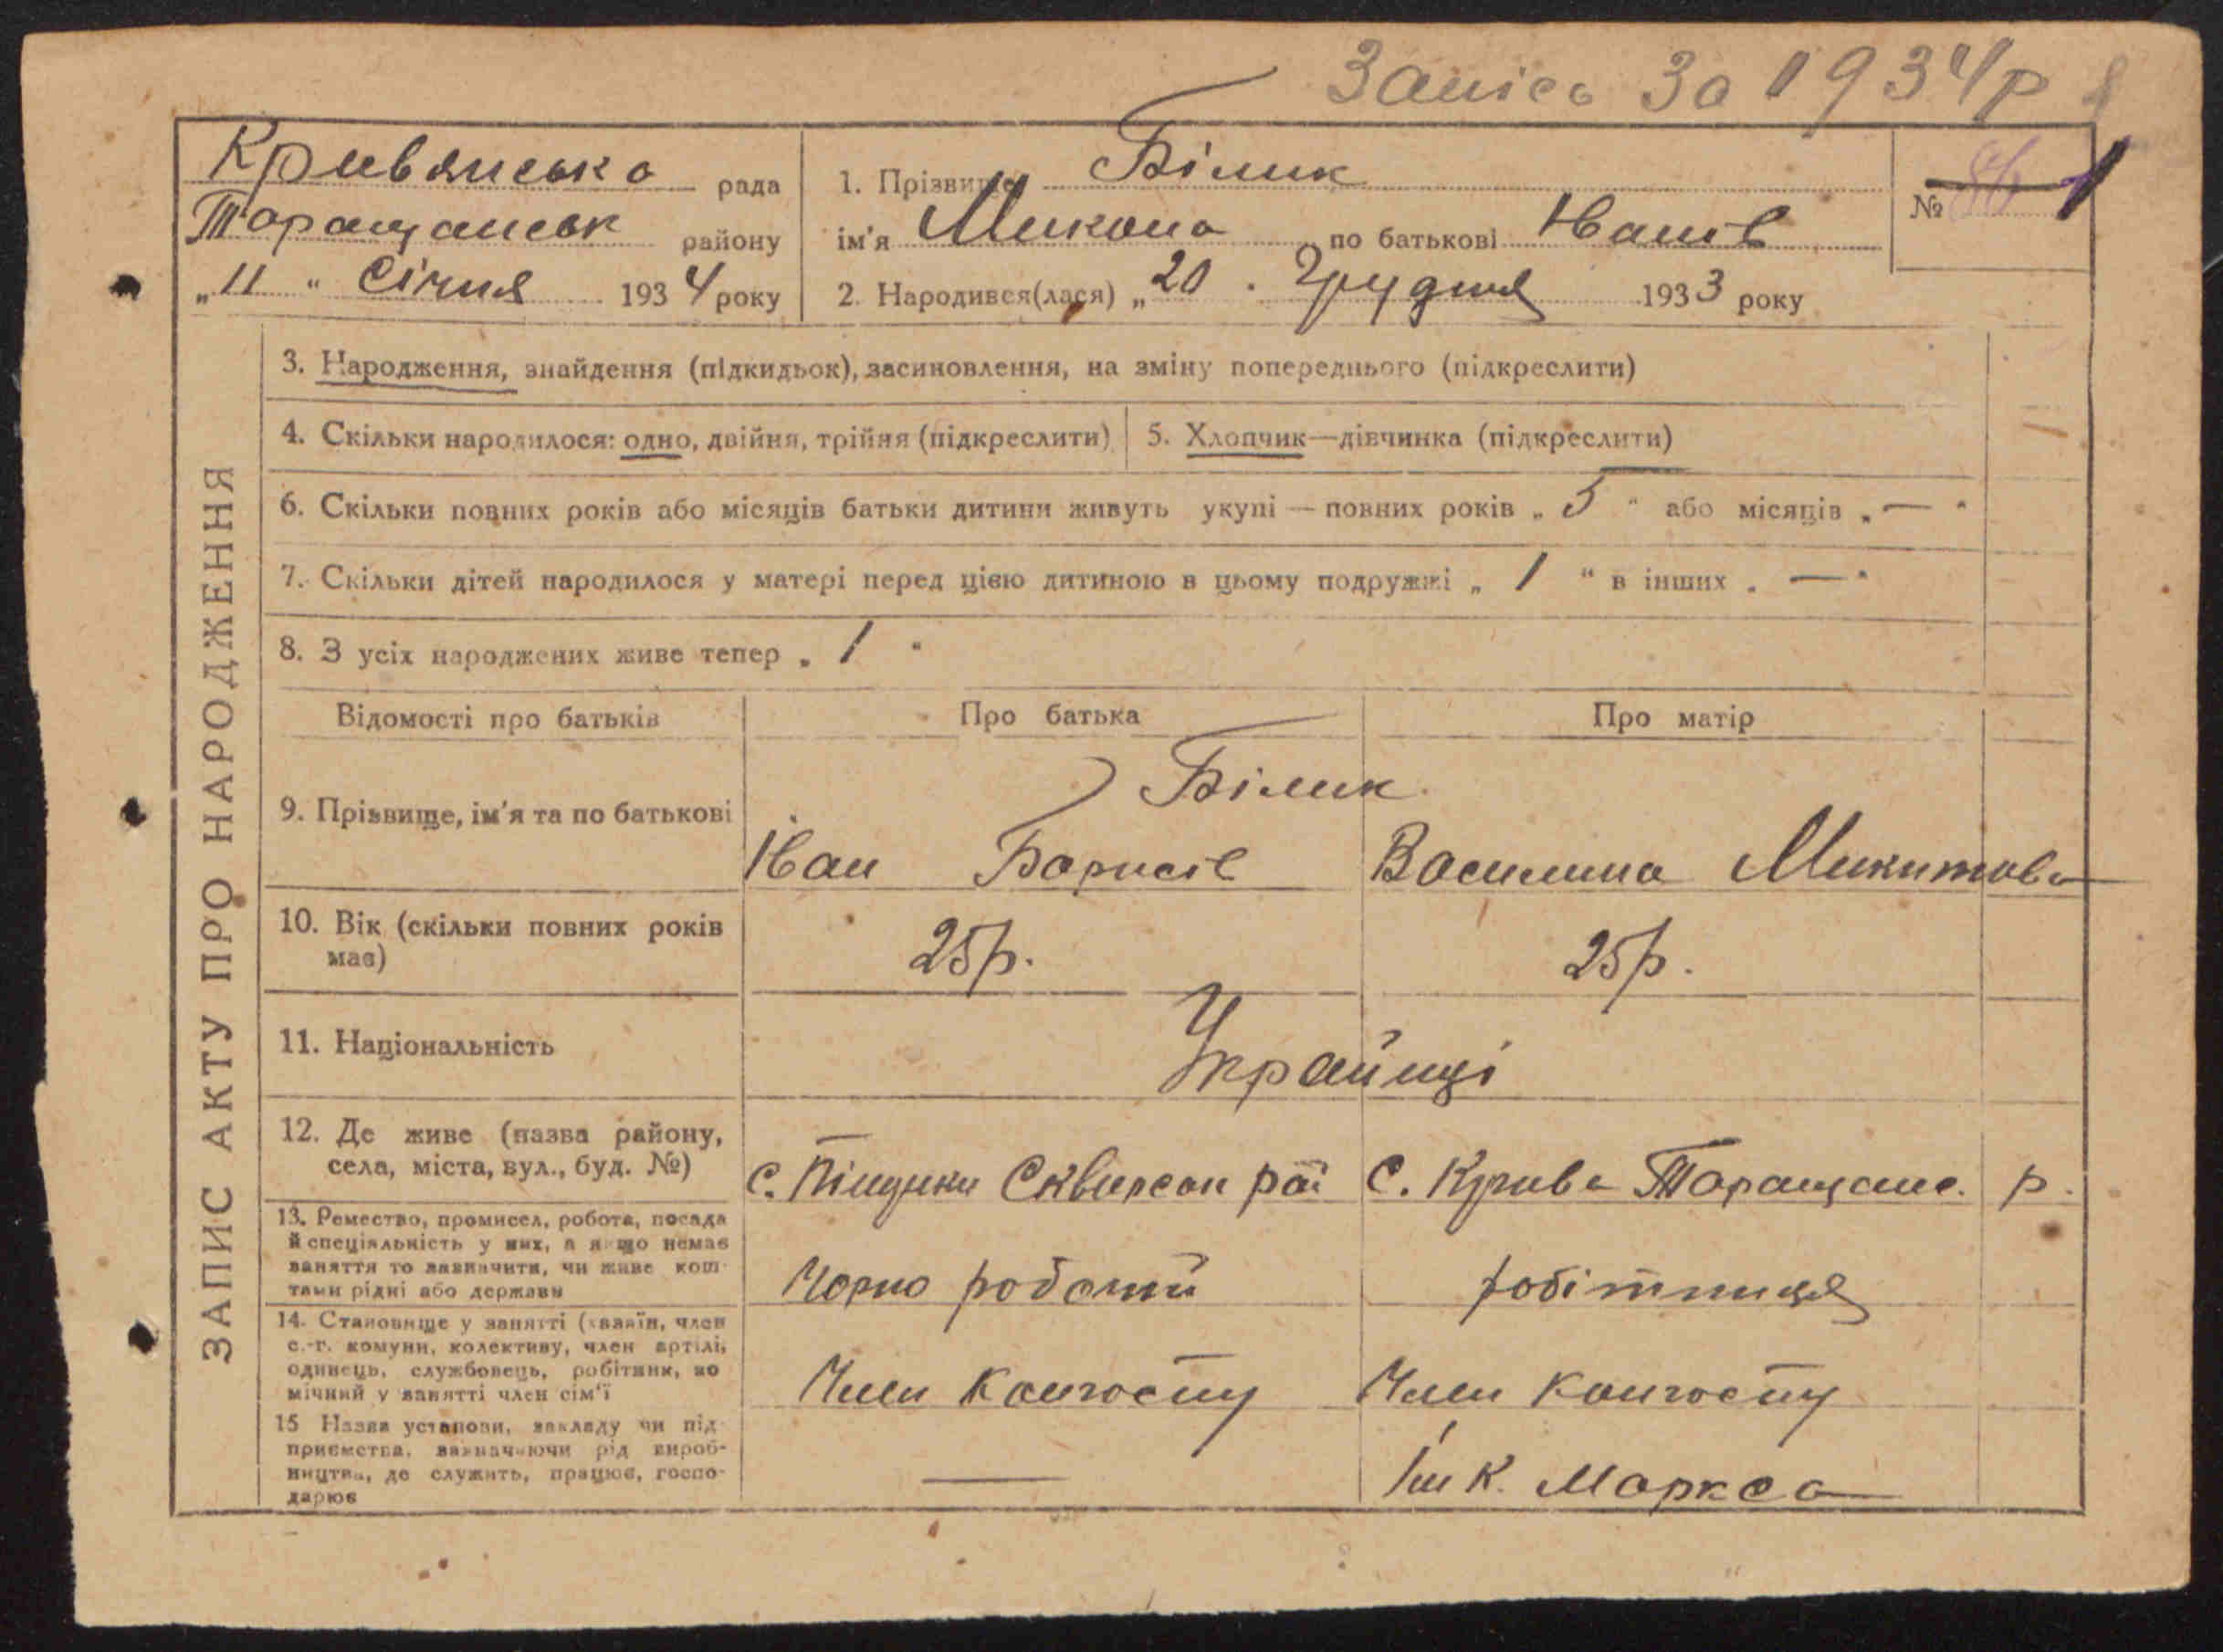 Запісь За 1934 р
Кривянська рада
Таращанськ району
„11" Січня 1934 року
1. Прізвище Білик
ім'я Микола по батькові Іванів
2. Народився(лася) „20 . Грудня 1933 року
№ 86 1
ЗАПИС АКТУ ПРО НАРОДЖЕННЯ
3. Народження, знайдення (підкидьок), засиновлення, на зміну попереднього (підкреслити)
4. Скільки народилося: одно, двійня, трійня (підкреслити)
5. Хлопчик—дівчинка (підкреслити)
6. Скільки повних років або місяців батьки дитини живуть укупі — повних років „ 5 " або місяців „ — "
7. Скільки дітей народилося у матері перед цією дитиною в цьому подружжі „ 1 " в інших „ — "
8. З усіх народжених живе тепер „ 1 "
Відомості про батьків Про батька Про матір
9. Прізвище, ім'я та по батькові
Білик
Іван Борисів Василина Микитова
10. Вік (скільки повних років
має)
25 р. 25 р.
11. Національність
Українці
12. Де живе (назва району,
села, міста, вул., буд. №)
с. Піщики Сквирсон рай с. Крива Таращанс. р.
13. Ремество, промисел, робота, посада
й спеціяльність у них, а якщо немає
заняття то зазначити, чи живе кош-
тами рідні або держави
Чорно робочий робітниця
14. Становище у занятті (хазяїн, член
с.-г. комуни, колективу, член артілі,
одинець, службовець, робітник, по
мічний у занятті член сім'ї
Член колгоспу Член колгоспу
15 Назва установи, закладу чи під-
приємства, зазначаючи рід вироб-
ництва, де служить, працює, госпо-
дарює
— Ім К. Маркса